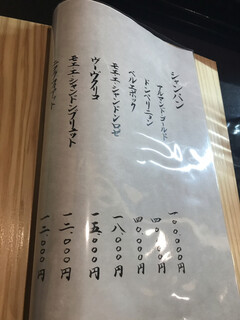 シャンパン
アルマンドゴールド 一〇〇〇〇〇円
ドンペリニョン 四〇〇〇〇円
ベルエポック 四〇〇〇〇円
モエエシャンドンロゼ 一八、〇〇〇円
ヴーヴクリコ 一五、〇〇〇円
モエエシャンドンブリュト 一二、〇〇〇円
一二、〇〇〇円